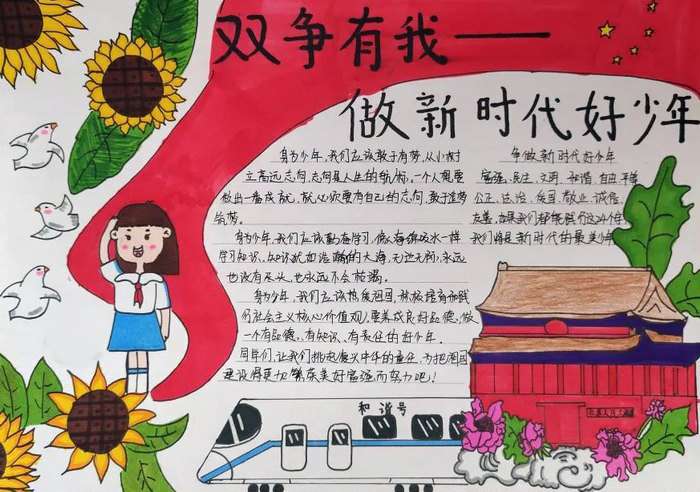 双争有我——
做新时代好少年
身为少年,我们应该敢于有梦,从小树
立高远志向,志向是人生的航标,一个人想要
做出一番成就,就必须要有自己的志向,敢于逐梦
筑梦。
身为少年,我们应该勤奋学习,像海绵吸水一样
学习知识,知识就如浩瀚的大海,无边无际,永远
也没有尽头,也永远不会枯竭。
身为少年,我们应该热爱祖国,积极培育和践
行社会主义核心价值观,要养成良好品德,做
一个有品德,有知识、有责任的好少年。
同学们,让我们挑起振兴中华的重任,为把祖国
建设得更加繁荣美好富强而努力吧!
争做新时代好少年
富强、民主、文明、和谐、自由、平等
公正、法治、爱国、敬业、诚信、
友善,如果我们都根据
我们将是新时代的最美少年
和谐号